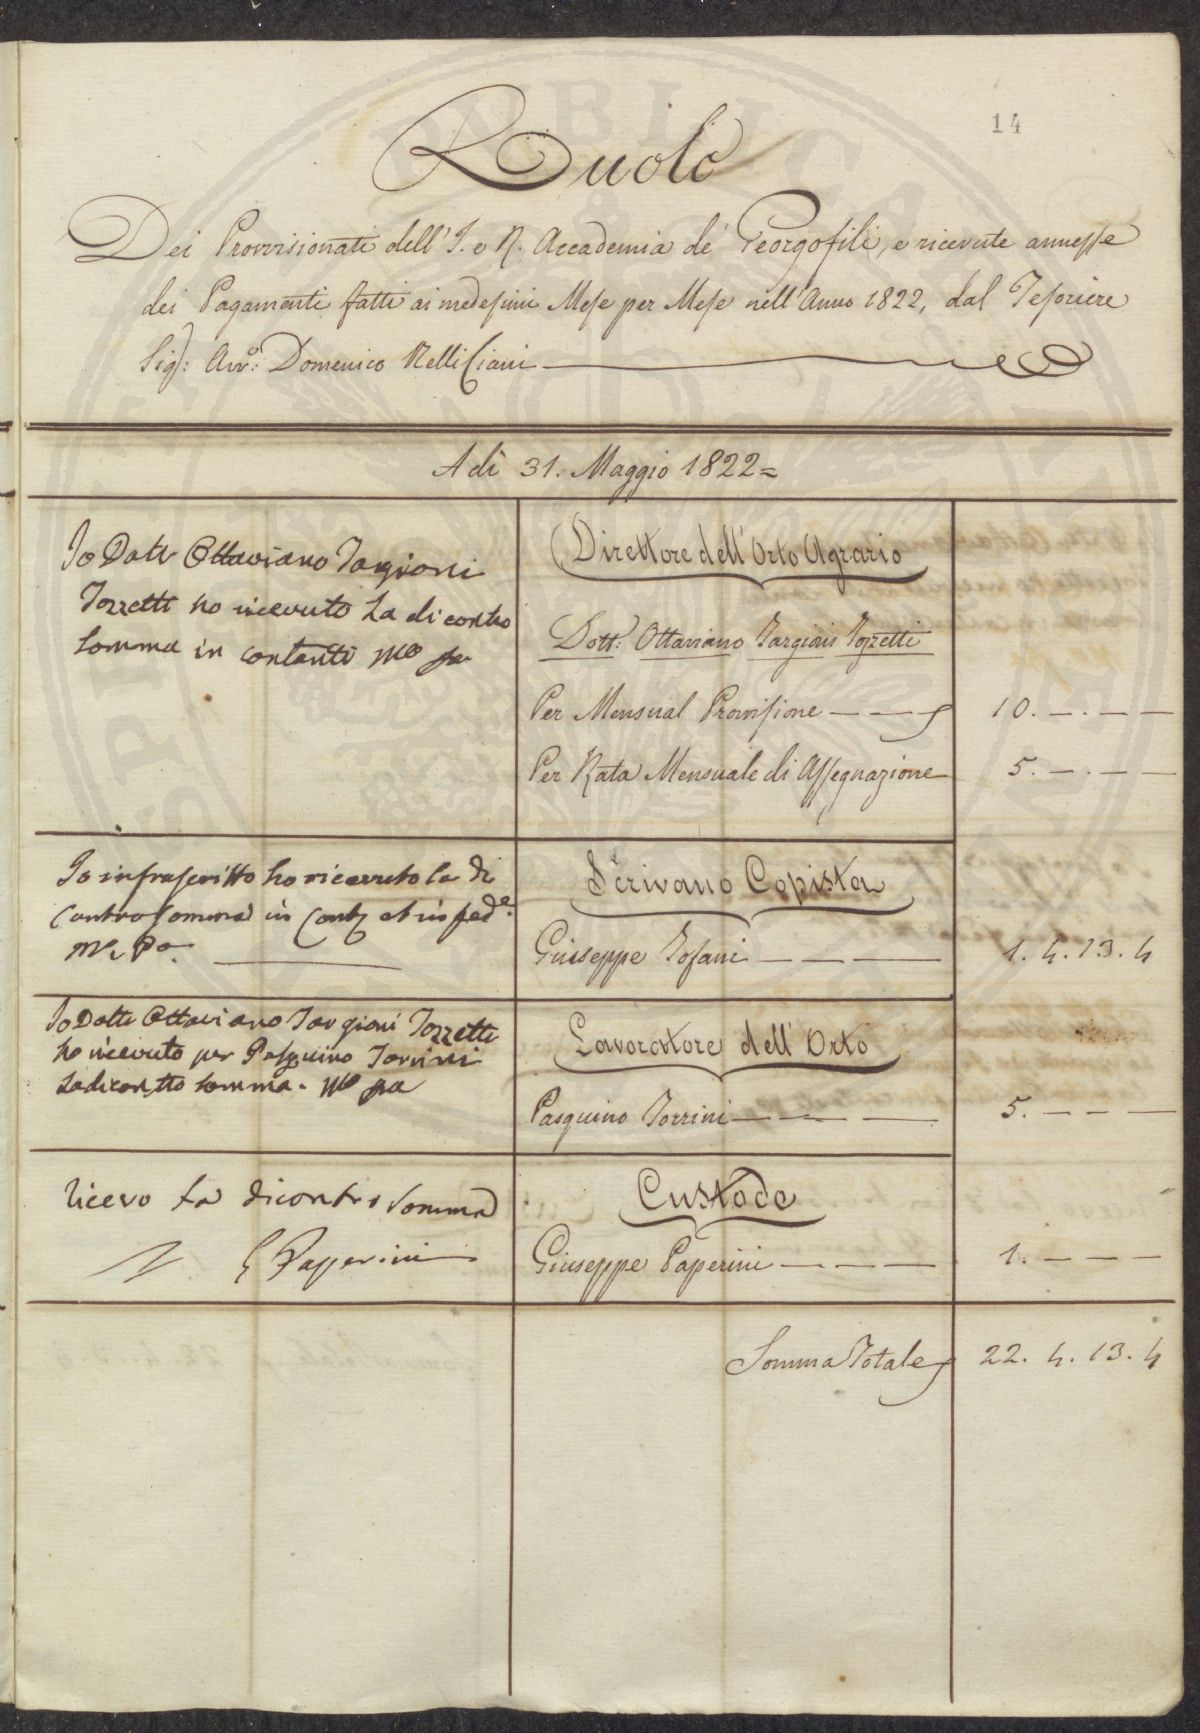 14
Ruolo
Dei Provvisionati dell' I. e R. Accademia de' Georgofili, e ricevute annesse
dei Pagamenti fatti ai medesimi Mese per Mese nell' Anno 1822, dal Tesoriere
Sig: Avv: Domenico Nelli Ciani
Adì 31. Maggio 1822=
Io Dott Ottaviano Targioni
Tozzetti ho ricevuto la di contro
somma in contanti mo pa
Direttore dell' Orto Agrario
Dott: Ottaviano Targioni Tozzetti
Per Mensual Provvisione — — — 10. — . — —
Per Rata Mensuale di Assegnazione 5. — . — —
Io infrascritto ho ricevuto la di
Contro somma in Cont et in fede
mo Po.
Scrivano Copista
Giuseppe Tofani — — — 1. 4. 13. 4
Io Dotte Ottaviano Targioni Tozzetti
ho ricevuto per Pasquino Torrini
la dicontro somma. mo pa
Lavoratore dell' Orto
Pasquino Torrini — — — 5. — — —
Ricevo la dicontro somma
G Papperini
Custode
Giuseppe Paperini — — — — 1. — — —
Somma Totale 22. 4. 13. 4